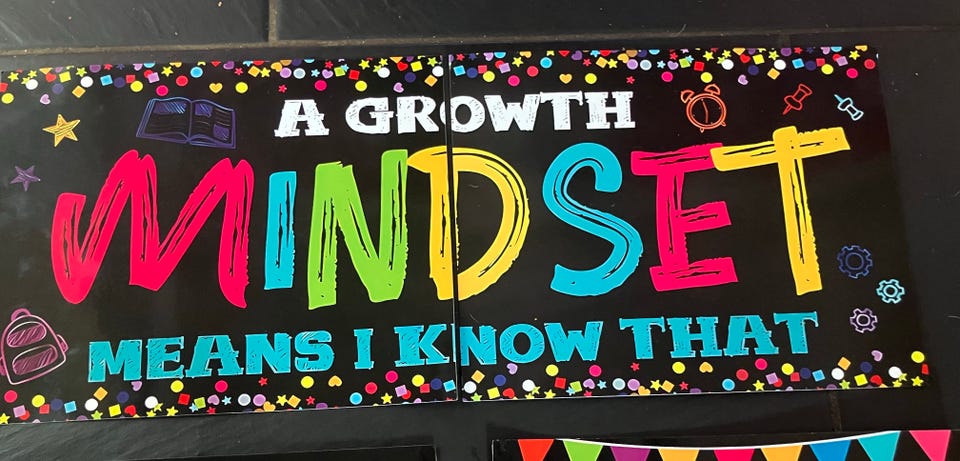 A GROWTH
MINDSET
MEANS I KNOW THAT